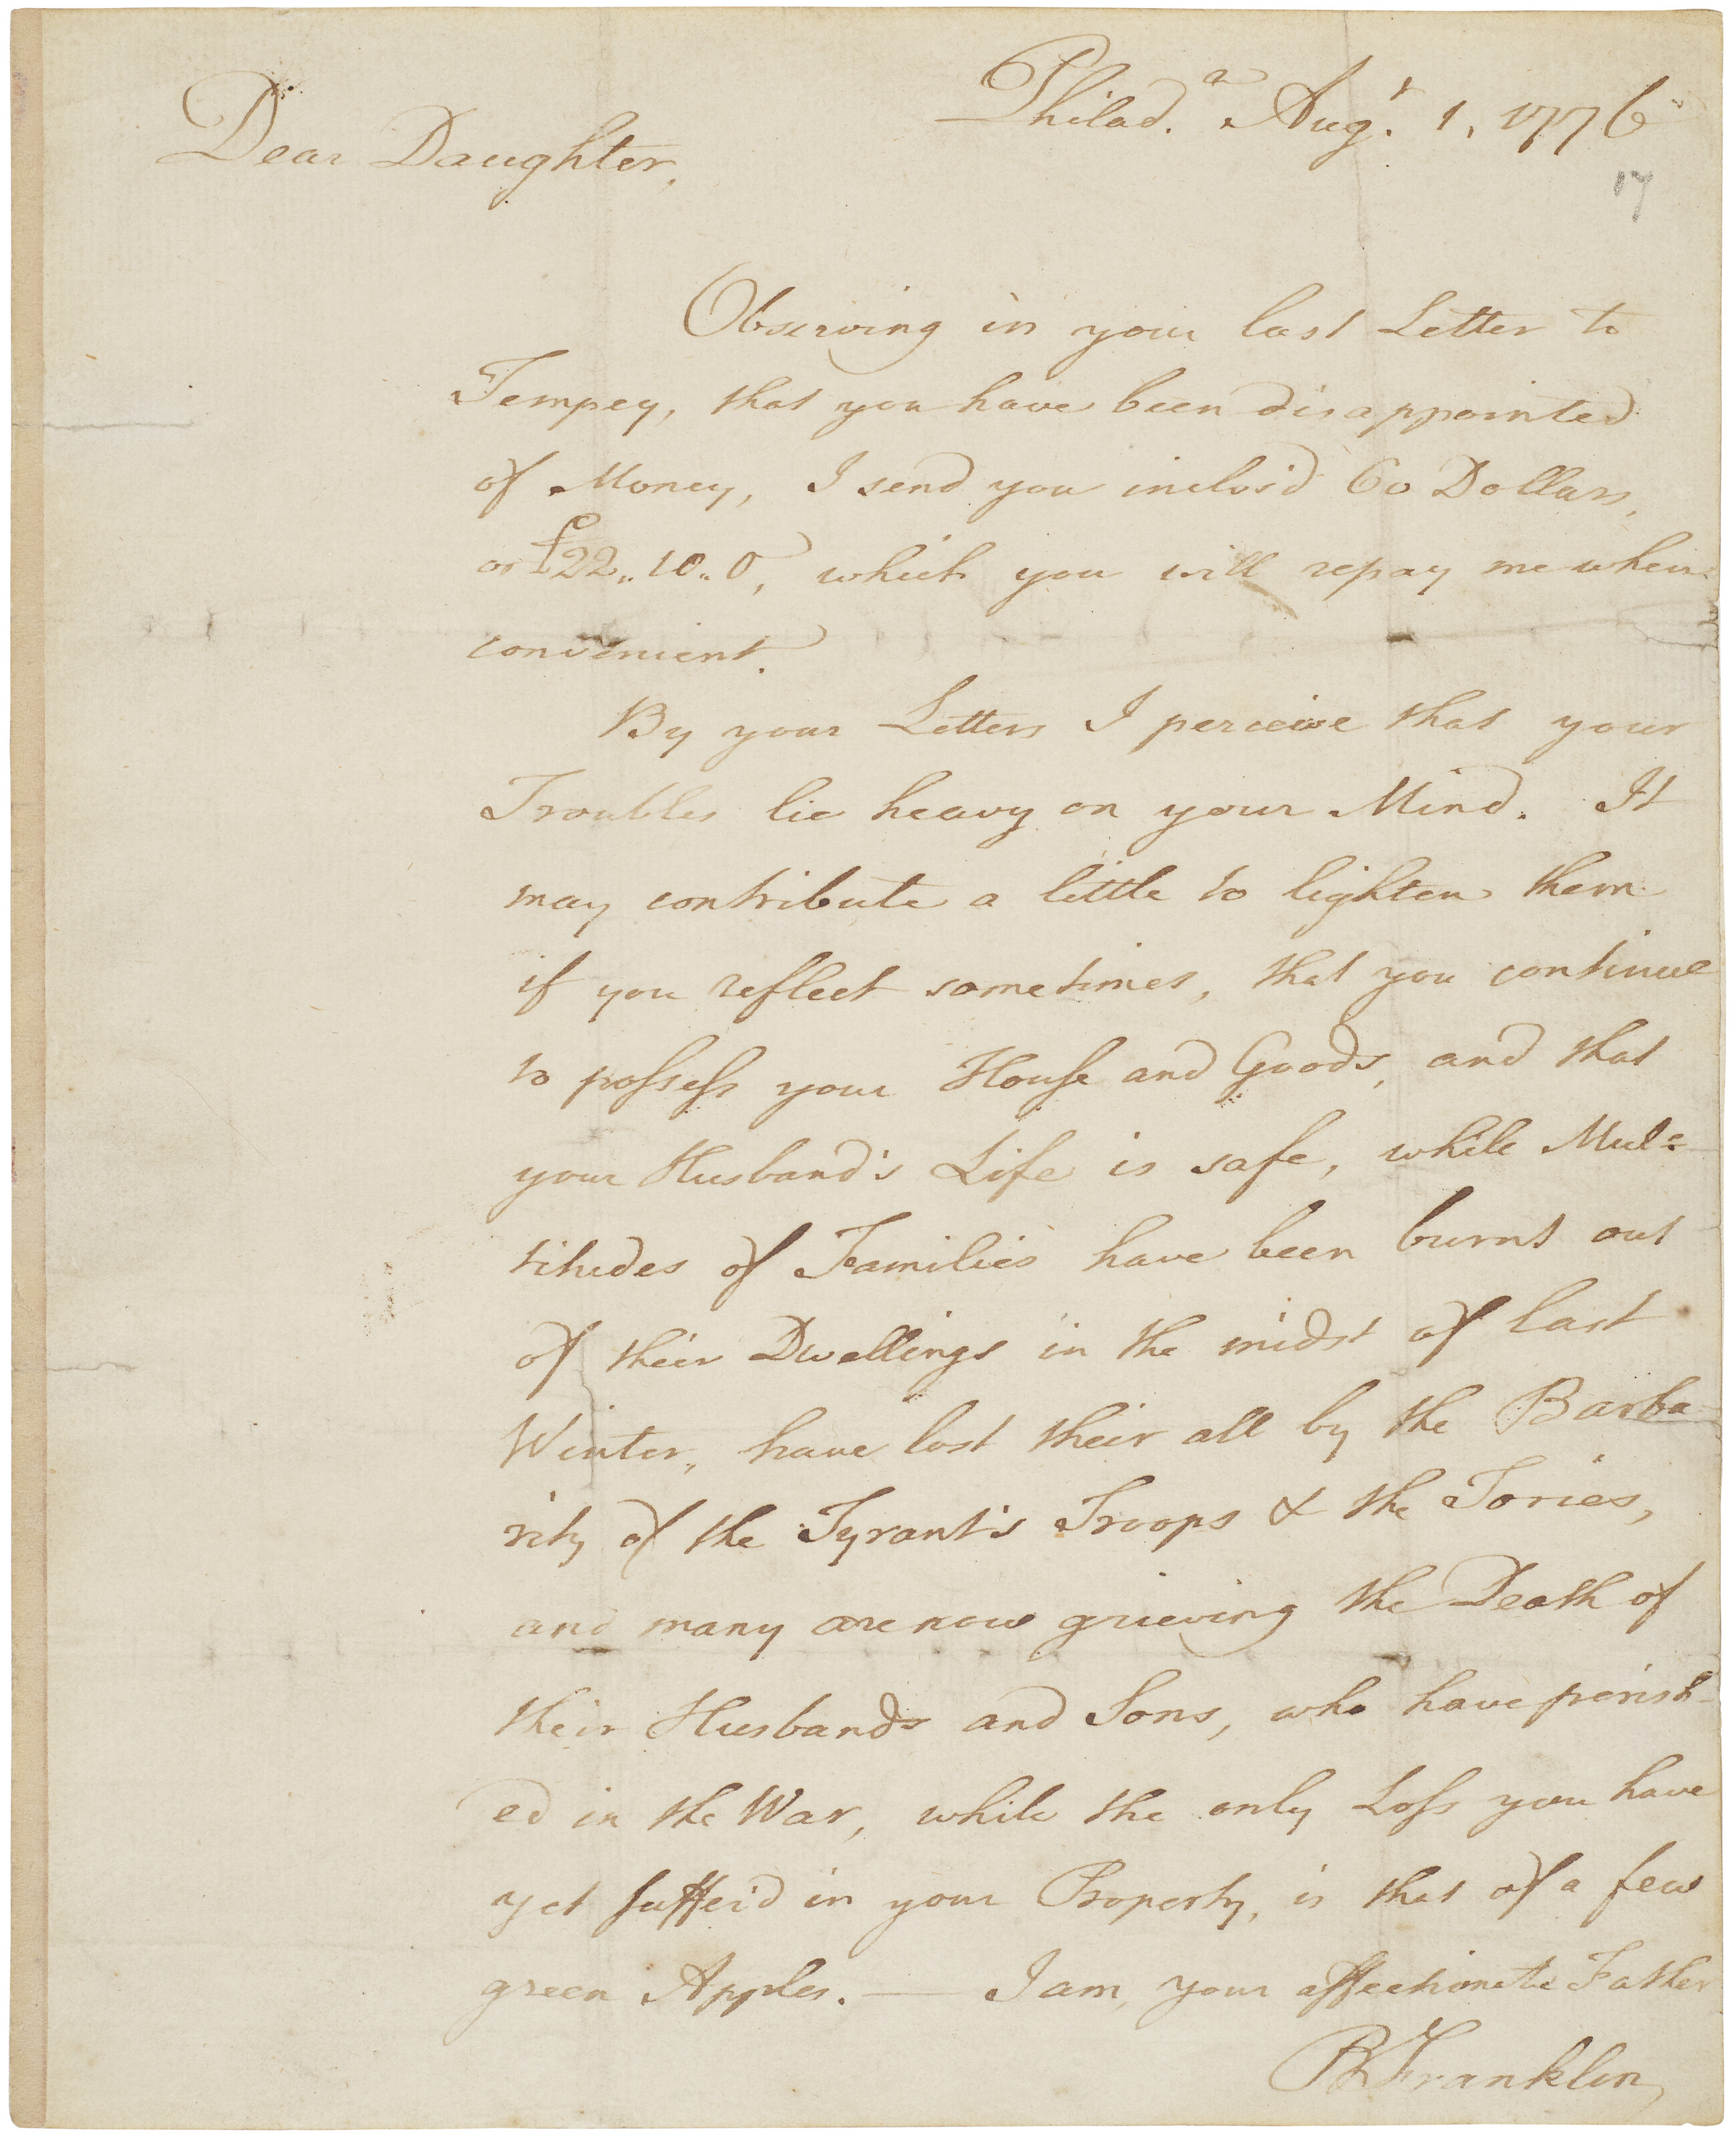 Philad.ᵃ Aug.ᵗ 1, 1776
Dear Daughter,
17
Observing in your last Letter to
Tempey, that you have been disappointed
of Money, I send you inclos'd 60 Dollars,
or £22.. 10.. 0, which you will repay me when
convenient.
By your Letters I perceive that your
Troubles lie heavy on your Mind. It
may contribute a little to lighten them
if you reflect sometimes, that you continue
to poſseſs your Houſe and Goods, and that
your Husband's Life is safe, while Mul=
titudes of Families have been burnt out
of their Dwellings in the midst of last
Winter, have lost their all by the Barba
rity of the Tyrant's Troops & the Tories,
and many are now grieving the Death of
their Husbands and Sons, who have perish-
ed in the War, while the only Loſs you have
yet ſuffer'd in your Property, is that of a few
green Apples. — I am, your affectionate Father
B Franklin